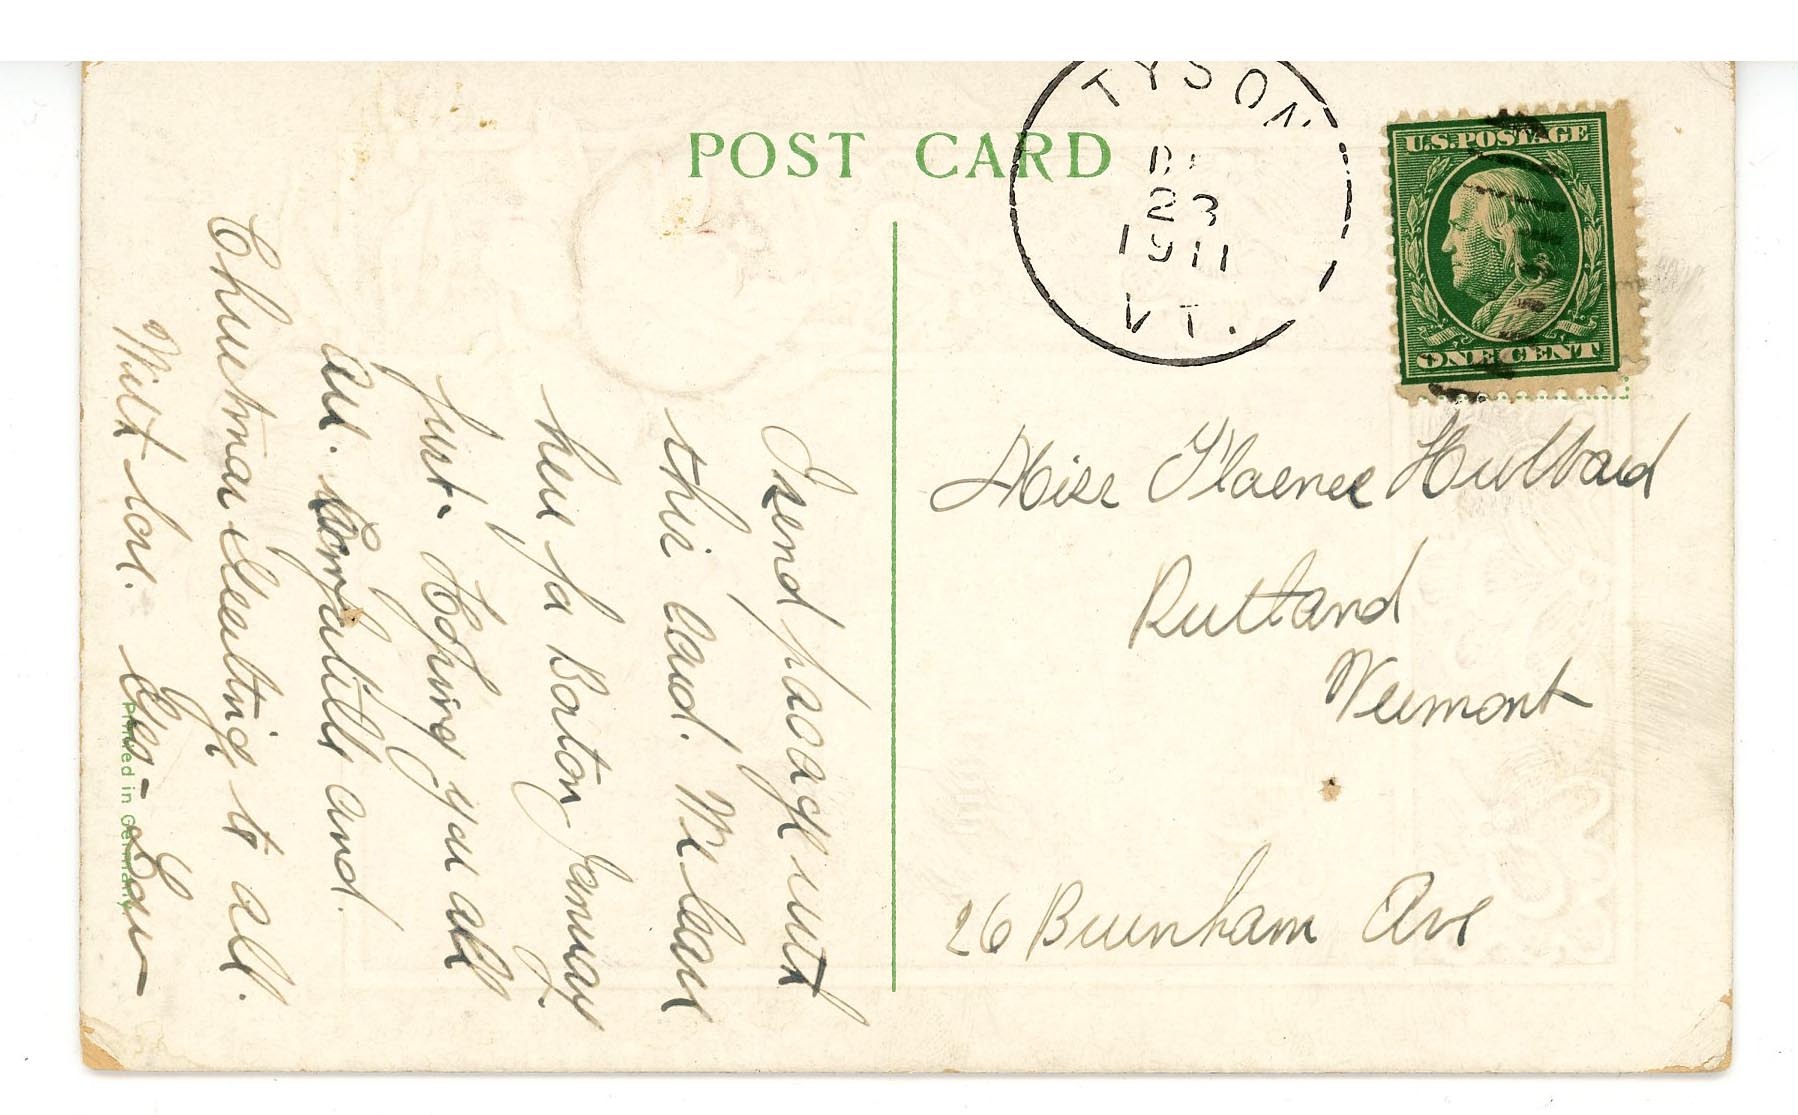 POST CARD
TYSON
DE
23
1911
VT.
U.S. POSTAGE
ONE CENT
I send package with
this card. We leave
here for Boston January
first. Hoping you all
are. and
Christmas Greetings to all.
With love.
Miss Florence Hulbard
Rutland
Vermont
26 Burnham Ave
Printed in Germany